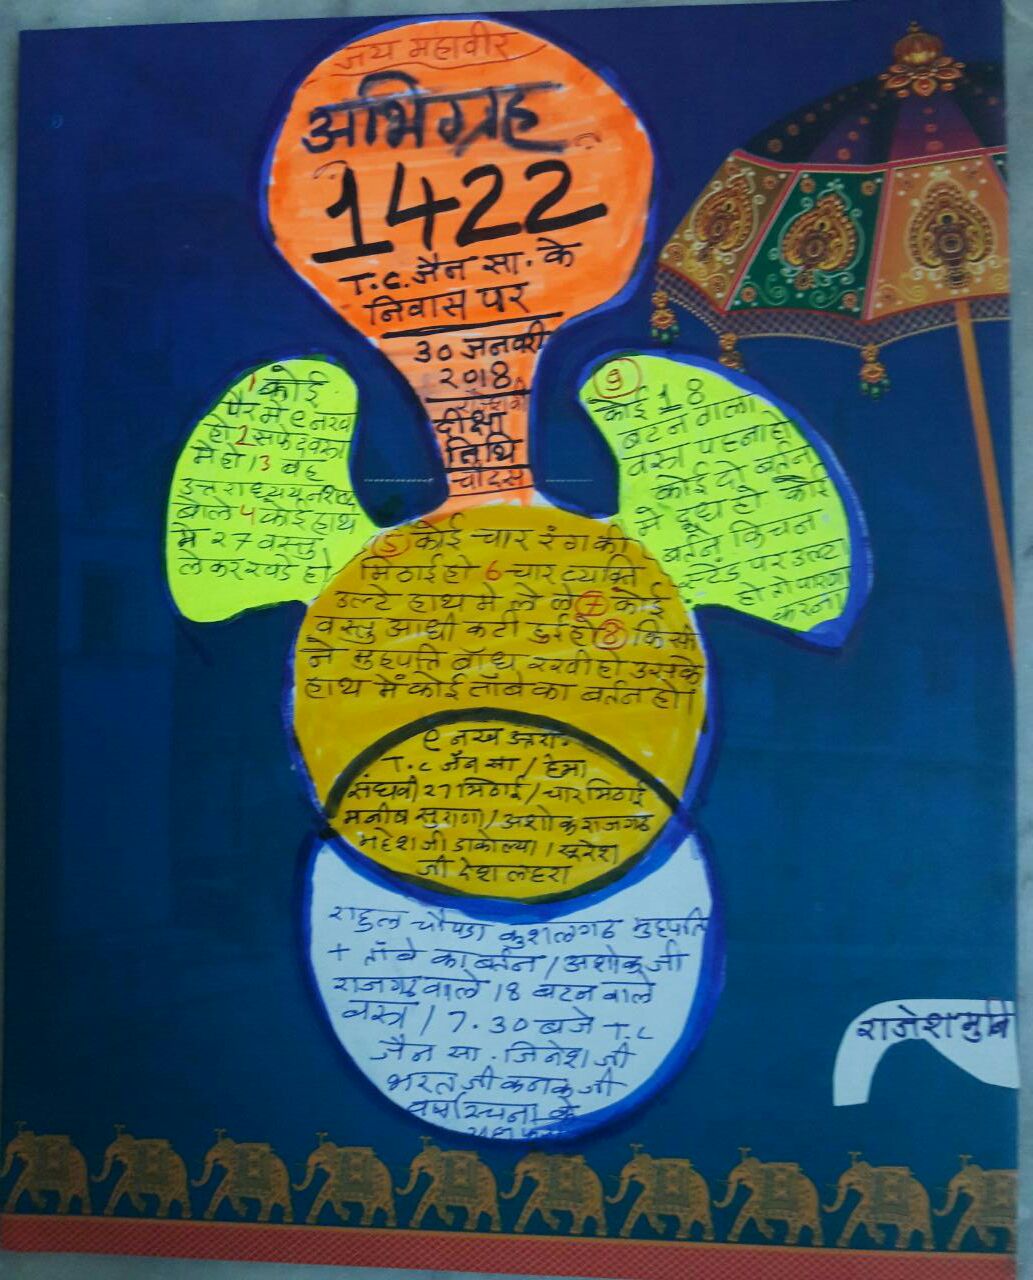 जय महावीर
अभिग्रह
1422
T.C. जैन सा. के
निवास पर
30 जनवरी
2018
दीक्षा
तिथि
चौदस
1 कोई
पैर मे ९ नख
हो 2 सफेद वस्त्र
मे हो 13 वह
वाले 4 कोई हाथ
मे २7 वस्तु
लेकर खडे हो
5 कोई चार रंग की
मिठाई हो 6 चार व्यक्ति
उल्टे हाथ मे ले ले 7 कोई
वस्तु आधी कटी हुई हो 8 किसी
ने मुहपति बाँध रखी हो उसके
हाथ में कोई ताँबे का बर्तन हो।
9
कोई 18
बटन वाला
वस्त्र पहना हो
कोई दो बर्तन
मे दूध हो कोई
बर्तन किचन
स्टेंड पर उल्टा
हो तो पारणा
करना
९ नख
T.C जैन सा / हेमा
संघवी 27 मिठाई / चार मिठाई
मनीष सुराणा / अशोक राजगढ
महेश जी डाकोल्या / सुरेश
जी देशलहरा
राहुल चौपडा कुशलगढ मुहपति
+ ताँबे का बर्तन / अशोक जी
राजगढ वाले 18 बटन वाले
वस्त्र / 7.30 बजे T.C
जैन सा. जिनेश जी
भरत जी कनक जी
वर्षा रचना के
राजेश मुनि